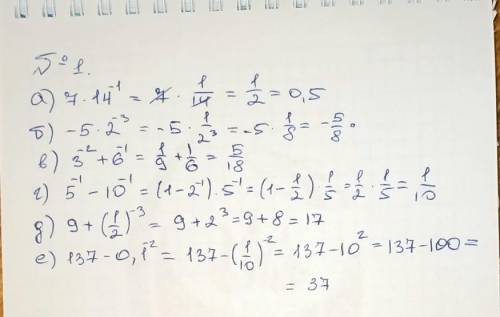 №1.
а) 7 · 14⁻¹ = 7 · 1/14 = 1/2 = 0,5
б) -5 · 2⁻³ = -5 · 1/2³ = -5 · 1/8 = -5/8.
в) 3⁻² + 6⁻¹ = 1/9 + 1/6 = 5/18
г) 5⁻¹ - 10⁻¹ = (1 - 2⁻¹) · 5⁻¹ = (1 - 1/2) · 1/5 = 1/2 · 1/5 = 1/10
д) 9 + (1/2)⁻³ = 9 + 2³ = 9 + 8 = 17
е) 137 - 0,1⁻² = 137 - (1/10)⁻² = 137 - 10² = 137 - 100 =
= 37